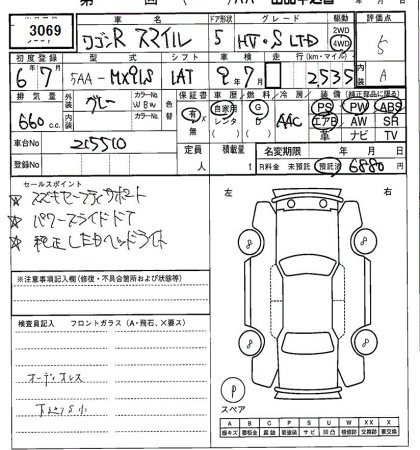 3069
車名 ドア形状 グレード 駆動 評価点
ワゴンR スマイル 5 HV・S LTD 2WD 4WD 5
初度登録 型式 シフト 車検 走行(km・マイル) 内装
6年7月 5AA-MX91S IAT 9年7月 2535 A
排気量 外装 カラーNo. 色替 カラーNo. 内装 保証書 車歴 燃料 冷房 装備(純正部品に限る)
660c.c. グレー WBW 有 無 自家用 レンタ G D AAC PS PW ABS
エアB AW SR
車 ナビ TV
車台No. 215510 定員 人 積載量 t 名変期限 年 月 日
登録No. R料金 未預託 預託済 6880円
セールスポイント
★ スズキセーフティサポート
★ パワースライドドア
★ 純正LEDヘッドライト
左 右
※注意事項記入欄(修復・不具合箇所および状態等)
検査員記入 フロントガラス(A・飛石、×要ス)
オーディオレス
P P P P
P
スペア
A B C P S U W X XX ×
線キズ 要板金 腐蝕 要塗装 サビ 凹凸 補修跡 要交換 交換跡 要交換